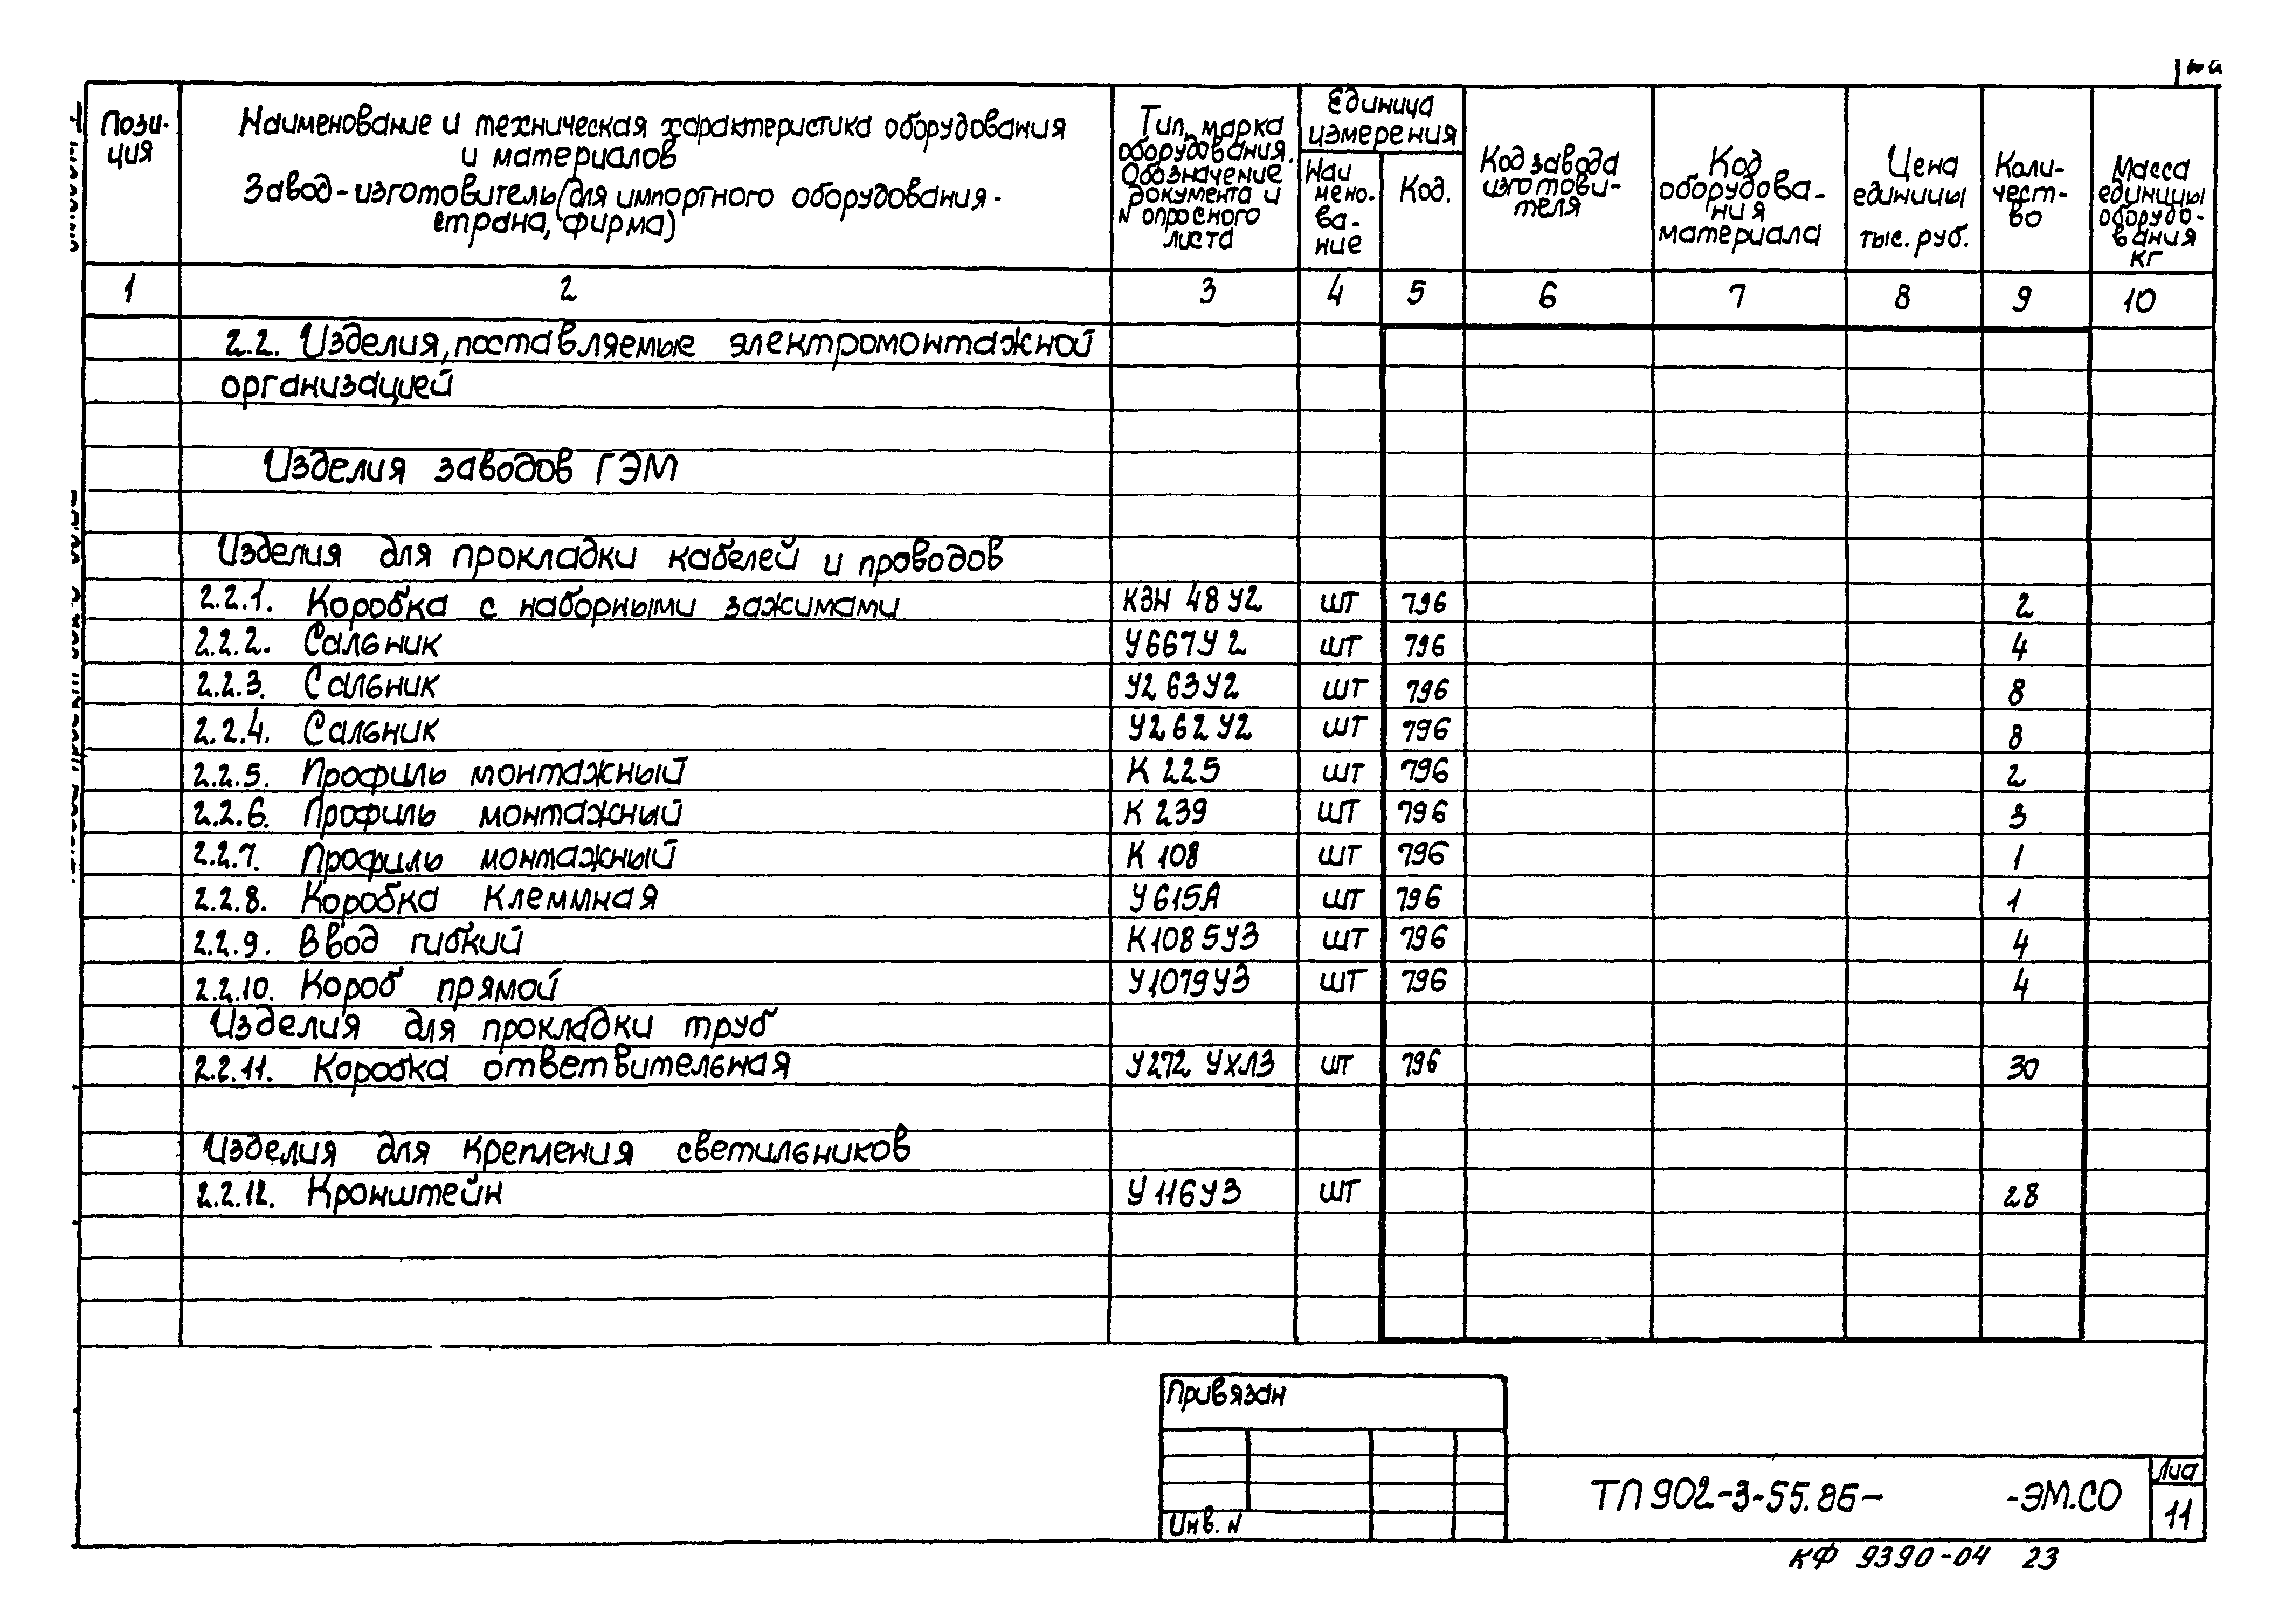 Пози-
ция
Наименование и техническая характеристика оборудования
и материалов
Завод-изготовитель (для импортного оборудования-
страна, фирма)
Тип, марка
оборудования.
Обозначение
документа и
N опросного
листа
Единица
измерения
Наи
мено-
ва-
ние
Код.
Код завода
изготови-
теля
Код
оборудова-
ния
материала
Цена
единицы
тыс. руб.
Коли-
чест-
во
Масса
единицы
оборудо-
вания
кг
1 2 3 4 5 6 7 8 9 10
2.2. Изделия, поставляемые электромонтажной
организацией
Изделия заводов ГЭМ
Изделия для прокладки кабелей и проводов
2.2.1. Коробка с наборными зажимами КЗН 48 У2 шт 796 2
2.2.2. Сальник У667У2 шт 796 4
2.2.3. Сальник У263У2 шт 796 8
2.2.4. Сальник У262У2 шт 796 8
2.2.5. Профиль монтажный К 225 шт 796 2
2.2.6. Профиль монтажный К 239 шт 796 3
2.2.7. Профиль монтажный К 108 шт 796 1
2.2.8. Коробка клеммная У615А шт 796 1
2.2.9. Ввод гибкий К1085У3 шт 796 4
2.2.10. Короб прямой У1079У3 шт 796 4
Изделия для прокладки труб
2.2.11. Коробка ответвительная У272 УХЛ3 шт 796 30
Изделия для крепления светильников
2.2.12. Кронштейн У116У3 шт 28
Привязан
Инв. N
ТП 902-3-55.86- -ЭМ.СО
Лис
11
КФ 9390-04 23